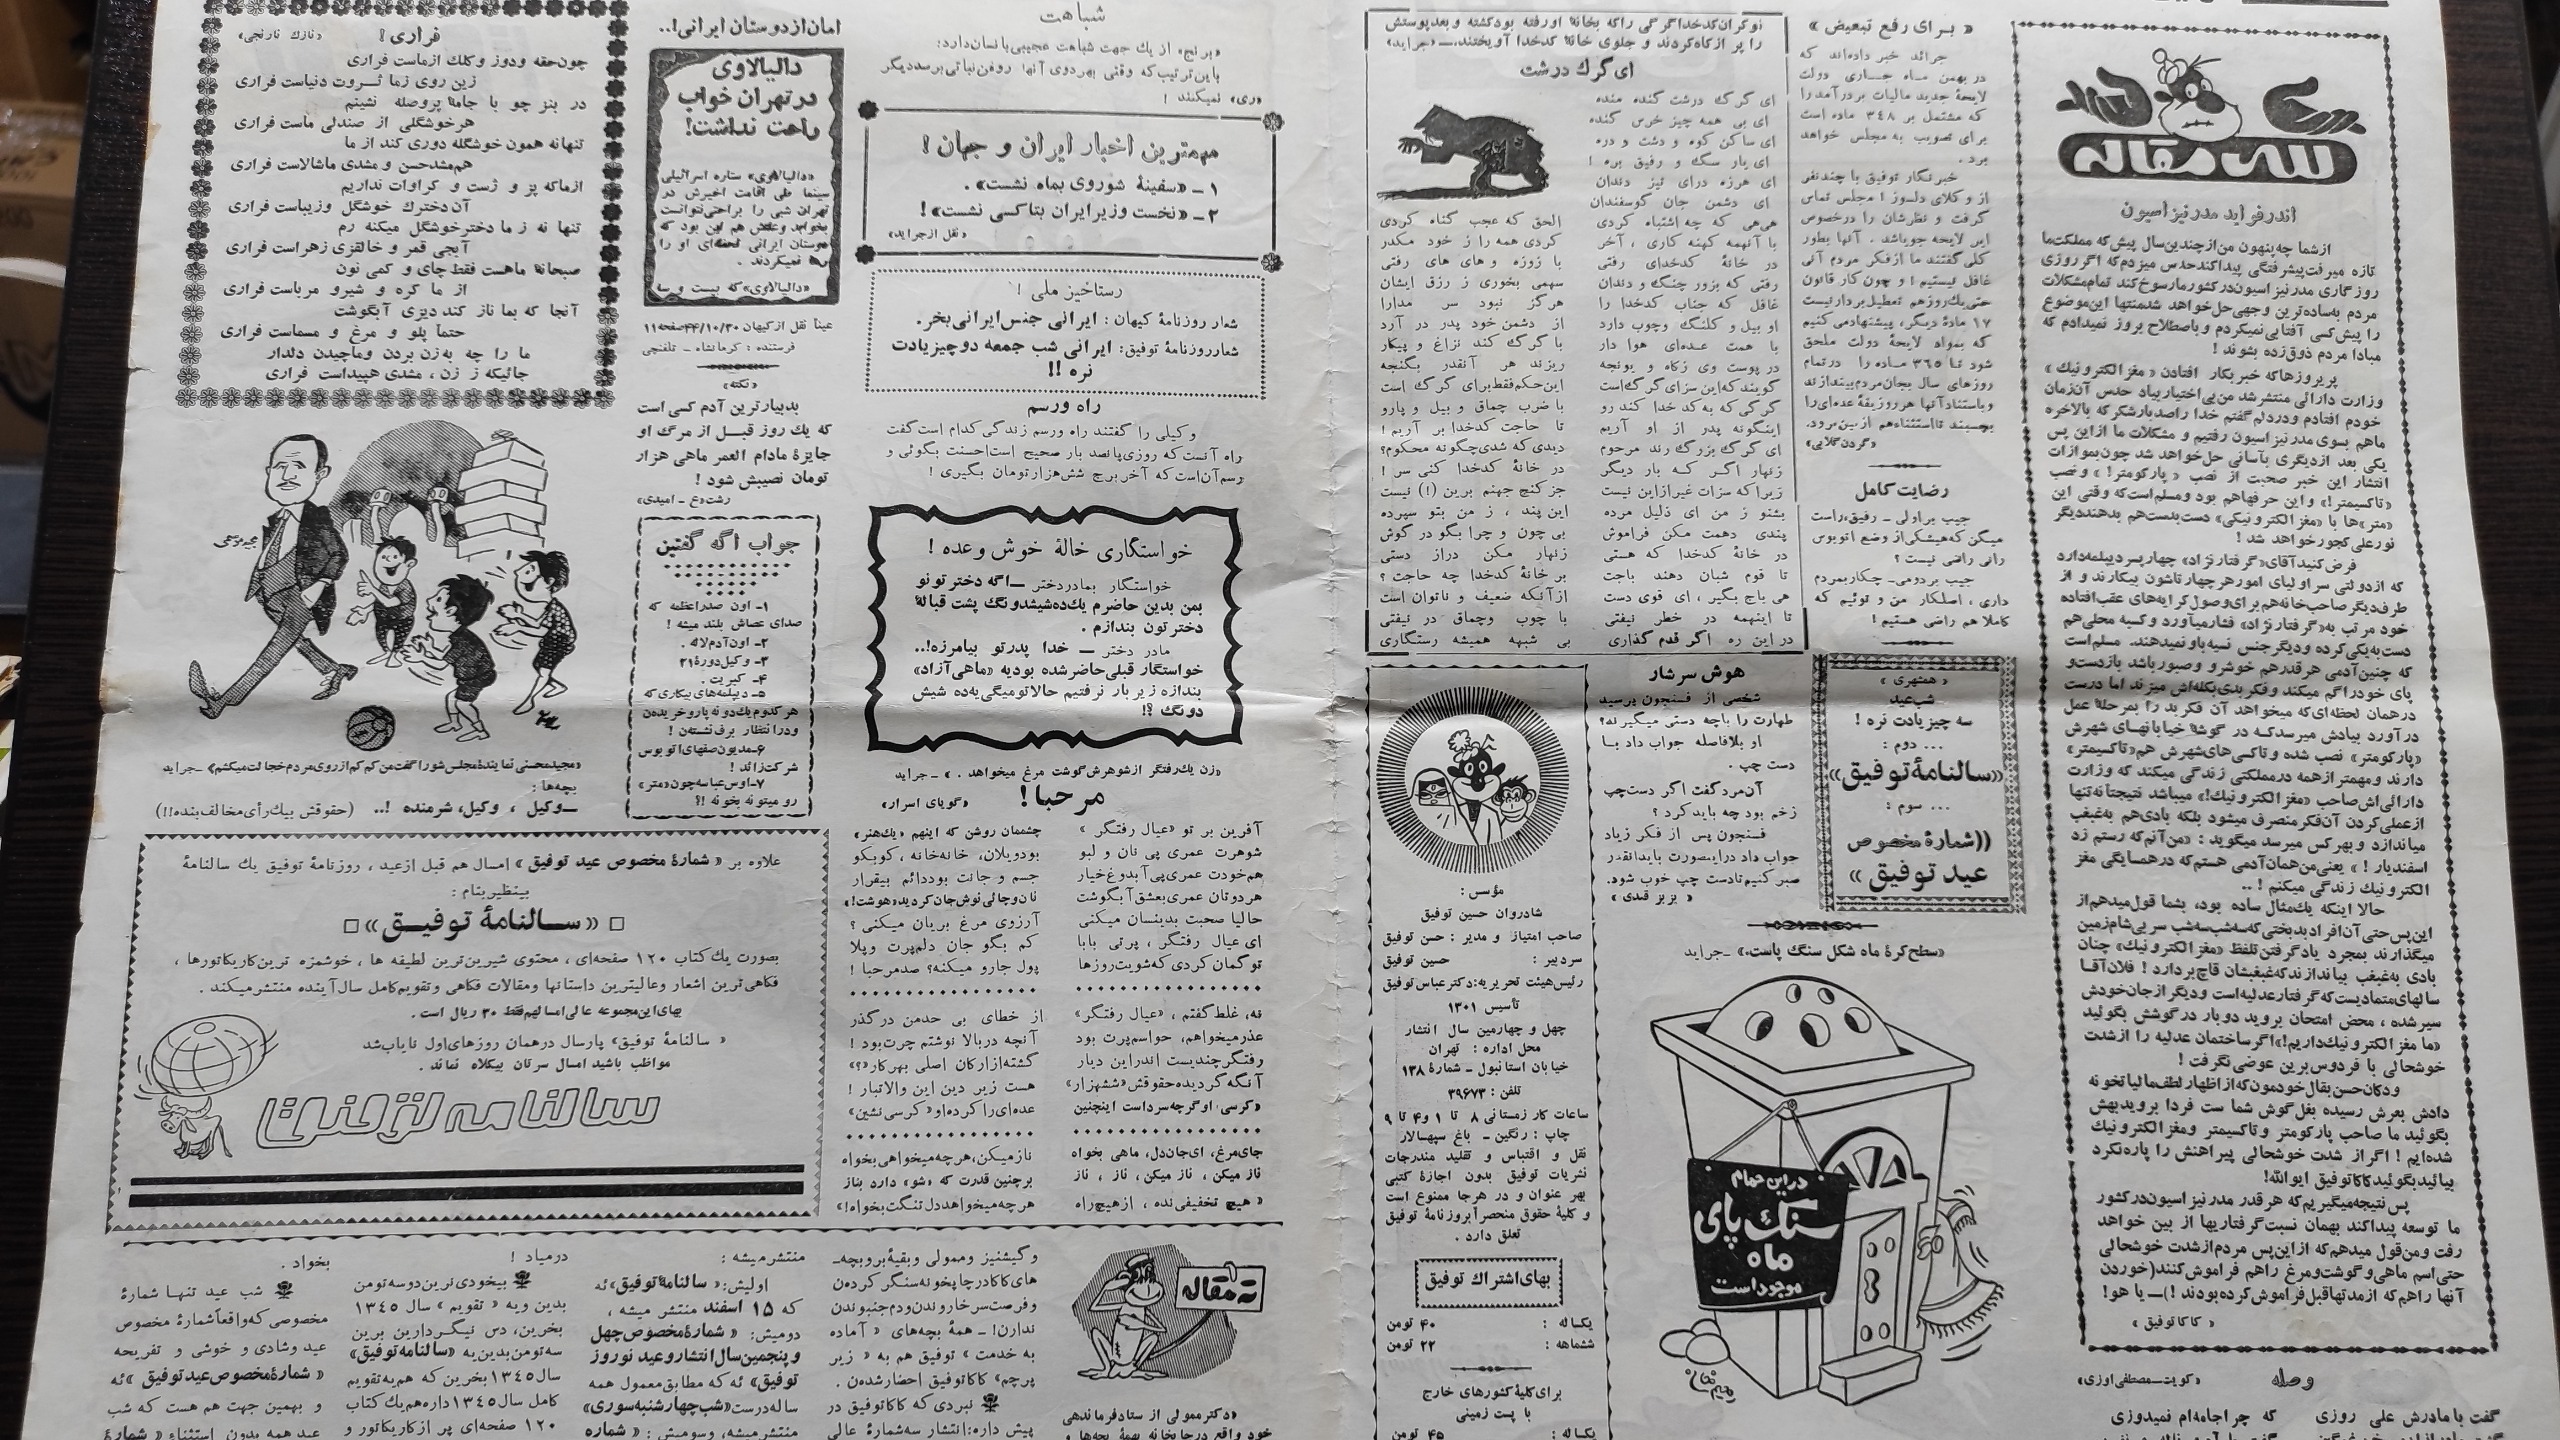 سرمقاله
اندر فواید مدرنیزاسیون
از شما چه پنهون من از چندین سال پیش که مملکت ما
تازه میرفت پیشرفتگی پیدا کند حدس میزدم که اگر روزی
روزگاری مدرنیزاسیون در کشور ما رسوخ کند تمام مشکلات
مردم به ساده‌ترین وجهی حل خواهد شد منتها این موضوع
را پیش کسی آفتابی نمیکردم و باصطلاح بروز نمیدادم که
مبادا مردم ذوق‌زده بشوند !
پریروزها که خبر بکار افتادن «مغز الکترونیک»
وزارت دارائی منتشر شد من بی‌اختیار بیاد حدس آن زمان
خودم افتادم و در دلم گفتم خدا را صد بار شکر که بالاخره
ما هم بسوی مدرنیزاسیون رفتیم و مشکلات ما از این پس
یکی بعد از دیگری بآسانی حل خواهد شد چون بموازات
انتشار این خبر صحبت از نصب «پارکومتر!» و نصب
«تاکسیمتر!» و این حرفها هم بود و مسلم است که وقتی این
«متر»ها با «مغز الکترونیکی» دست بدست هم بدهند دیگر
نور علی کجور خواهد شد !
فرض کنید آقای «گرفتار نژاد» چهار پسر دیپلمه دارد
که از دولتی سر اولیای امور هر چهار تاشون بیکارند و از
طرف دیگر صاحب خانه هم برای وصول کرایه‌های عقب افتاده
خود مرتب به «گرفتار نژاد» فشار میآورد و کسبه محلی هم
دست به یکی کرده و دیگر جنس نسیه باو نمیدهند. مسلم است
که چنین آدمی هر قدر هم خوشرو و صبور باشد باز دست و
پای خود را گم میکند و فکر بدی بکله‌اش میزند اما درست
در همان لحظه‌ای که میخواهد آن فکر بد را بمرحلهٔ عمل
در آورد بیادش میرسد که در گوشهٔ خیابانهای شهرش
«پارکومتر» نصب شده و تاکسی‌های شهرش هم «تاکسیمتر»
دارند و مهمتر از همه در مملکتی زندگی میکند که وزارت
دارائی‌اش صاحب «مغز الکترونیک!» میباشد نتیجتاً نه تنها
از عملی کردن آن فکر منصرف میشود بلکه بادی هم به غبغب
میاندازد و بهر کس میرسد میگوید : «من آنم که رستم زد
اسفندیار ! » یعنی من همان آدمی هستم که در همسایگی مغز
الکترونیک زندگی میکنم ! ..
حالا اینکه یك مثال ساده بود، بشما قول میدهم از
این پس حتی آن افراد بدبختی که سه شب سه شب سر بی‌شام زمین
میگذارند بمجرد یاد گرفتن تلفظ «مغز الکترونیك» چنان
بادی به غبغب بیاندازند که غبغبشان قاچ بردارد ! فلان آقا
سالهای متمادیست که گرفتار عدلیه است و دیگر از جان خودش
سیر شده ، محض امتحان بروید دو بار در گوشش بگوئید
«ما مغز الکترونیك داریم!» اگر ساختمان عدلیه را از شدت
خوشحالی با فردوس برین عوضی نگرفت !
و دکان حسن بقال خودمون که از اظهار لطف مالیاتخونه
دادش بعرش رسیده بغل گوش شماست فردا بروید بهش
بگوئید ما صاحب پارکومتر و تاکسیمتر و مغز الکترونیك
شده‌ایم ! اگر از شدت خوشحالی پیراهنش را پاره نکرد
بیائید بگوئید کاکا توفیق ایوالله!
پس نتیجه میگیریم که هر قدر مدرنیزاسیون در کشور
ما توسعه پیدا کند بهمان نسبت گرفتاریها از بین خواهد
رفت و من قول میدهم که از این پس مردم از شدت خوشحالی
حتی اسم ماهی و گوشت و مرغ را هم فراموش کنند (خوردن
آنها را هم که از مدتها قبل فراموش کرده بودند !) ــ یا هو!
« کاکا توفیق »
وصله
«کویت ــ مصطفی اوزی»
گفت با مادرش علی روزی
که چرا جامه‌ام نمیدوزی
« برای رفع تبعیض »
جرائد خبر داده‌اند که
در بهمن ماه جاری دولت
لایحهٔ جدید مالیات بر درآمد را
که مشتمل بر ۳۴۸ ماده است
برای تصویب به مجلس خواهد
برد .
خبرنگار توفیق با چند نفر
از وکلای دلسوز ! مجلس تماس
گرفت و نظرشان را درخصوص
این لایحه جویا شد . آنها بطور
کلی گفتند ما از فکر مردم آنی
غافل نیستیم ! و چون کار قانون
حتی یك روز هم تعطیل بردار نیست
۱۷ مادهٔ دیگر، پیشنهاد می کنیم
که بمواد لایحهٔ دولت ملحق
شود تا ۳۶۵ ماده را در تمام
روزهای سال بجان مردم بیندازند
و باستناد آنها هر روز یقهٔ عده‌ای را
بچسبند تا استثناء هم از بین برود.
«گردن گلابی»
رضایت کامل
جیب بر اولی ــ رفیق، راست
میگن که هیشکی از وضع اتوبوس
رانی راضی نیست ؟
جیب بر دومی ــ چکار بمردم
داری ، اصلکار من و توئیم که
کاملا هم راضی هستیم !
« همشهری »
شب عید
سه چیز یادت نره !
... دوم :
«سالنامهٔ توفیق»
... سوم :
((شمارهٔ مخصوص
عید توفیق »
«سطح کرهٔ ماه شکل سنگ پاست.» ــ جراید
در این حمام
سنگ پای
ماه
موجود است
نوکران کدخدا گرگی را که بخانهٔ او رفته بود کشته و بعد پوستش
را پر از کاه کردند و جلوی خانهٔ کدخدا آویختند. ــ «جراید»
ای گرگ درشت
ای گرگ درشت گنده منده
ای بی همه چیز خرس گنده
ای ساکن کوه و دشت و دره
ای یار سگ و رفیق بره !
ای هرزه درای تیز دندان
ای دشمن جان گوسفندان
هی‌هی که چه اشتباه کردی
الحق که عجب گناه کردی
با آنهمه کهنه کاری ، آخر
کردی همه را ز خود مکدر
در خانهٔ کدخدای رفتی
با زوزه و های های رفتی
رفتی که بزور چنگ و دندان
سهمی بخوری ز رزق ایشان
غافل که جناب کدخدا را
هرگز نبود سر مدارا
او بیل و کلنگ و چوب دارد
از دشمن خود پدر در آرد
با همت عده‌ای هوادار
با گرگ کند نزاع و پیکار
در پوست وی زکاه و یونجه
ریزند هر آنقدر بگنجه
گویند که این سزای گرگ است
این حکم فقط برای گرگ است
گرگی که به کدخدا کند رو
با ضرب چماق و بیل و پارو
اینگونه پدر از او آریم
تا حاجت کدخدا بر آریم !
ای گرگ بزرگ رند مرحوم
دیدی که شدی چگونه محکوم؟
زنهار اگر که بار دیگر
در خانهٔ کدخدا کنی سر !
زیرا که سزات غیر از این نیست
جز کنج جهنم برین (!) نیست
بشنو ز من ای ذلیل مرده
این پند ، ز من بتو سپرده
پندی دهمت مکن فراموش
بی چون و چرا بگو در گوش
در خانهٔ کدخدا که هستی
زنهار مکن دراز دستی
تا قوم شبان دهند باجت
بر خانهٔ کدخدا چه حاجت ؟
هی باج بگیر ، ای قوی دست
از آنکه ضعیف و ناتوان است
تا اینهمه در خطر نیفتی
با چوب و چماق در نیفتی
در این ره اگر قدم گذاری
بی شبهه همیشه رستگاری
هوش سرشار
شخصی از فسنجون پرسید
طهارت را باچه دستی میگیرند؟
او بلافاصله جواب داد با
دست چپ .
آن مرد گفت اگر دست چپ
زخم بود چه باید کرد ؟
فسنجون پس از فکر زیاد
جواب داد در اینصورت باید انقدر
صبر کنیم تا دست چپ خوب شود.
« یزیز قندی »
مؤسس :
شادروان حسین توفیق
صاحب امتیاز و مدیر : حسن توفیق
سردبیر : حسین توفیق
رئیس هیئت تحریریه : دکتر عباس توفیق
تأسیس ۱۳۰۱
چهل و چهارمین سال انتشار
محل اداره : تهران
خیابان استانبول ــ شمارهٔ ۱۳۸
تلفن : ۳۹۶۷۳
ساعات کار زمستانی ۸ تا ۱ و ۴ تا ۹
چاپ : رنگین ــ باغ سپهسالار
نقل و اقتباس و تقلید مندرجات
نشریات توفیق بدون اجازهٔ کتبی
بهر عنوان و در هر جا ممنوع است
و کلیهٔ حقوق منحصراً بروزنامهٔ توفیق
تعلق دارد .
بهای اشتراك توفیق
یکساله : ۴۰ تومن
ششماهه : ۲۲ تومن
برای کلیهٔ کشورهای خارج
با پست زمینی
یکساله : ۴۵ تومن
شباهت
«برنج» از یك جهت شباهت عجیبی با نسان دارد :
باین ترتیب که وقتی بهر دوی آنها روغن نباتی برسد دیگر
«ری» نمیکنند !
مهمترین اخبار ایران و جهان !
۱ ــ «سفینهٔ شوروی بماه نشست» .
۲ ــ «نخست وزیر ایران بتاکسی نشست» !
«نقل از جراید»
رستاخیز ملی !
شعار روزنامهٔ کیهان : ایرانی جنس ایرانی بخر.
شعار روزنامهٔ توفیق: ایرانی شب جمعه دو چیز یادت
نره !!
راه و رسم
وکیلی را گفتند راه و رسم زندگی کدام است گفت
راه آنست که روزی پانصد بار صحیح است احسنت بگوئی و
رسم آن است که آخر برج شش هزار تومان بگیری !
خواستگاری خالهٔ خوش وعده !
خواستگار بمادر دختر ــ اگه دختر تونو
بمن بدین حاضرم یك ده شیشدونگ پشت قبالهٔ
دختر تون بندازم .
مادر دختر ــ خدا پدر تو بیامرزه!..
خواستگار قبلی حاضر شده بود یه «ماهی آزاد»
بندازه زیر بار نرفتیم حالا تو میگی یه ده شیش
دونگ ؟!
«زن یك رفتگر از شوهرش گوشت مرغ میخواهد .» ــ جراید
مرحبا !
«گویای اسرار»
آفرین بر تو «عیال رفتگر »
چشممان روشن که اینهم «یك هنر»
شوهرت عمری پی نان و لبو
بود ویلان، خانه خانه ، کو بکو
هم خودت عمری پی آبدوغ خیار
جسم و جانت بود دائم بیقرار
هر دوتان عمری بعشق آبگوشت
نان و چائی نوش جان کردید «هوشت!»
حالیا صحبت بدینسان میکنی
آرزوی مرغ بریان میکنی ؟
ای عیال رفتگر ، پرتی بابا
کم بگو جان دلم پرت و پلا
تو گمان کردی که شویت روزها
پول جارو میکنه؟ صد مرحبا !
نه، غلط گفتم ، «عیال رفتگر»
از خطای بی حد من در گذر
عذر میخواهم، حواسم پرت بود
آنچه در بالا نوشتم چرت بود !
رفتگر چندیست اندر این دیار
گشته از ارکان اصلی بهر کار «؟»
آنگه گردیده حقوقش «ششهزار»
هست زیر دین این والاتبار !
«کرسی» او گرچه سرد است اینچنین
عده‌ای را کرده او «کرسی نشین»
جای مرغ، ای جان دل، ماهی بخواه
ناز میکن، هر چه میخواهی بخواه
ناز میکن ، ناز میکن ، ناز ، ناز
بر چنین قدرت که «شو» دارد بناز
« هیچ تخفیفی نده ، از هیچ راه
هر چه میخواهد دل تنگت بخواه!»
امان از دوستان ایرانی !..
دالیالاوی
در تهران خواب
راحت نداشت!
«دالیالاوی» ستاره اسرائیلی
سینما طی اقامت اخیرش در
تهران شبی را براحتی نتوانست
بخوابد و علتش هم این بود که
دوستان ایرانی لحظه‌ای او را
رها نمیکردند .
«دالیالاوی» که بیست و سه
عیناً نقل از کیهان ۴۴/۱۰/۳۰ صفحه ۱۱
فرستنده : کرمانشاه ــ تلفنچی
«نکته»
بدبیارترین آدم کسی است
که یك روز قبل از مرگ او
جایزهٔ مادام العمر ماهی هزار
تومان نصیبش شود !
رشت «ع ــ امیدی»
جواب اگه گفتین
۱ــ اون صدر اعظمه که
صدای عصاش بلند میشه !
۲ــ اون آدم لاله .
۳ــ وکیل دورهٔ ۲۱
۴ــ کبریت .
۵ــ دیپلمه‌های بیکاری که
هر کدوم یك دونه پارو خریدهن
و در انتظار برف نشستن !
۶ــ مدیون صفهای اتوبوس
شرکت زائد !
۷ــ اوس عباسه چون «متر»
رو میتونه بخونه !؟
فراری !
«نازك نارنجی»
چون حقه و دوز و کلك از ماست فراری
زین روی زما ثروت دنیاست فراری
در بنز چو با جامهٔ پر وصله نشینم
هر خوشگلی از صندلی ماست فراری
تنها نه همون خوشگله دوری کند از ما
هم مشد حسن و مشدی ماشالاست فراری
از ما که پز و ژست و کراوات نداریم
آن دخترك خوشگل و زیباست فراری
تنها نه ز ما دختر خوشگل میکنه رم
آبجی قمر و خالقزی زهراست فراری
صبحانهٔ ما هست فقط چای و کمی نون
از ما کره و شیر و مرباست فراری
آنجا که بما ناز کند دیزی آبگوشت
حتماً پلو و مرغ و مسماست فراری
ما را چه به زن بردن و ماچیدن دلدار
جائیکه ز زن ، مشدی هپیداست فراری
«مجید محسنی نمایندهٔ مجلس شورا گفت من کم کم از روی مردم خجالت میکشم» ــ جراید
بچه‌ها :
ــ وکیل ، وکیل، شرمنده !.. (حقوقش بیك رأی مخالف بنده!!)
علاوه بر « شمارهٔ مخصوص عید توفیق » امسال هم قبل از عید ، روزنامهٔ توفیق یك سالنامهٔ
بینظیر بنام :
«سالنامهٔ توفیق»
بصورت یك کتاب ۱۲۰ صفحه‌ای ، محتوی شیرین‌ترین لطیفه ها ، خوشمزه ترین کاریکاتورها ،
فکاهی ترین اشعار و عالیترین داستانها و مقالات فکاهی و تقویم کامل سال آینده منتشر میکند .
بهای این مجموعه عالی امسال هم فقط ۳۰ ریال است .
« سالنامهٔ توفیق» پارسال در همان روزهای اول نایاب شد
مواظب باشید امسال سرتان بیکلاه نماند .
سالنامه توفیق
ته مقاله
«دکتر ممولی از ستاد فرماندهی
خود واقع در چاپخانه بهمهٔ بچه‌ها و
و گیشنیز و ممولی و بقیهٔ برو بچه‌ــ
های کاکا در چاپخونه سنگر کرده‌ن
و فرصت سر خاروندن و دم جنبوندن
ندارن! ــ همهٔ بچه‌های « آماده
به خدمت » توفیق هم به « زیر
پرچم» کاکا توفیق احضار شده‌ن .
نبردی که کاکا توفیق در
پیش داره: انتشار سه شمارهٔ عالی
منتشر میشه :
اولیش: « سالنامهٔ توفیق» ئه
که ۱۵ اسفند منتشر میشه ،
دومیش: « شمارهٔ مخصوص چهل
و پنجمین سال انتشار و عید نوروز
توفیق» ئه که مطابق معمول همه
ساله درست «شب چهارشنبه سوری»
منتشر میشه، و سومیش : « شماره
در میاد !
بیخودی نرین دو سه تومن
بدین و یه « تقویم » سال ۱۳۴۵
بخرین، دس نیگر دارین برین
سه تومن بدین یه «سالنامه توفیق»
سال ۱۳۴۵ بخرین که هم یه تقویم
کامل سال ۱۳۴۵ داره هم یك کتاب
۱۲۰ صفحه‌ای پر از کاریکاتور و
بخواد .
شب عید تنها شمارهٔ
مخصوصی که واقعاً شمارهٔ مخصوص
عید و شادی و خوشی و تفریحه
« شمارهٔ مخصوص عید توفیق » ئه
و بهمین جهت هم هست که شب
عید همه بدون استثناء « شمارهٔ